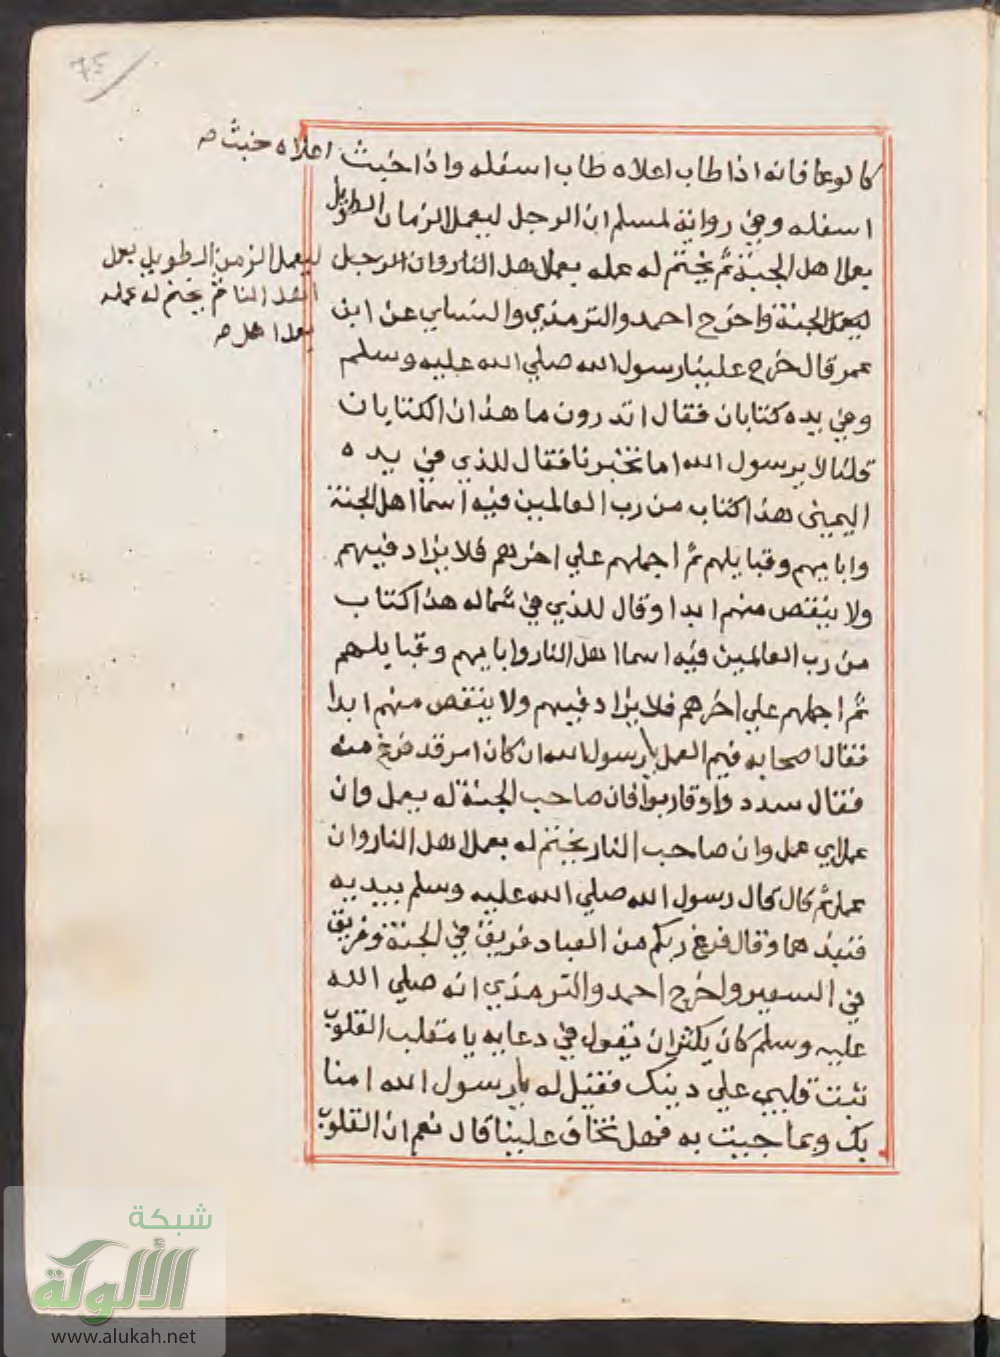 75
كالوعا فانه اذا طاب اعلاه طاب اسفله واذا خبث
اعلاه خبث صح
اسفله وفي رواية لمسلم ان الرجل ليعمل الزمان الطويل
بعمل اهل الجنة ثم يختم له عمله بعمل اهل النار وان الرجل
ليعمل الزمن الطويل بعمل
اهل النار ثم يختم له عمله
بعمل اهل صح
الجنة واخرج احمد والترمذي والنساي عن ابن
عمر قال خرج علينا رسول الله صلي الله عليه وسلم
وفي يده كتابان فقال اتدرون ما هذان الكتابان
قلنا لا يرسول الله اما تخبرنا فقال للذي في يده
اليميني هذا كتاب من رب العالمين فيه اسما اهل الجنة
وابايهم وقبايلهم ثم اجملهم علي اخرهم فلا يزاد فيهم
ولا ينقص منهم ابدا وقال للذي في شماله هذا كتاب
من رب العالمين فيه اسما اهل النار وابايهم وقبايلهم
ثم اجملهم علي اخرهم فلا يزاد فيهم ولا ينقص منهم ابدا
فقال اصحابه فيم العمل يا رسول الله ان كان امر قد فرغ منه
فقال سددوا وقاربوا فان صاحب الجنة له بعمل وان
عمل اي عمل وان صاحب النار يختم له بعمل اهل النار وان
عمل ثم قال قال رسول الله صلي الله عليه وسلم بيديه
فنبذهما وقال فرغ ربكم من العباد فريق في الجنة وفريق
في السعير واخرج احمد والترمذي انه صلي الله
عليه وسلم كان يكثر ان يقول في دعايه يا مقلب القلوب
ثبت قلبي علي دينك فقيل له يا رسول الله امنا
بك وبما جيت به فهل تخاف علينا قال نعم ان القلوب
شبكة
الألوكة
www.alukah.net